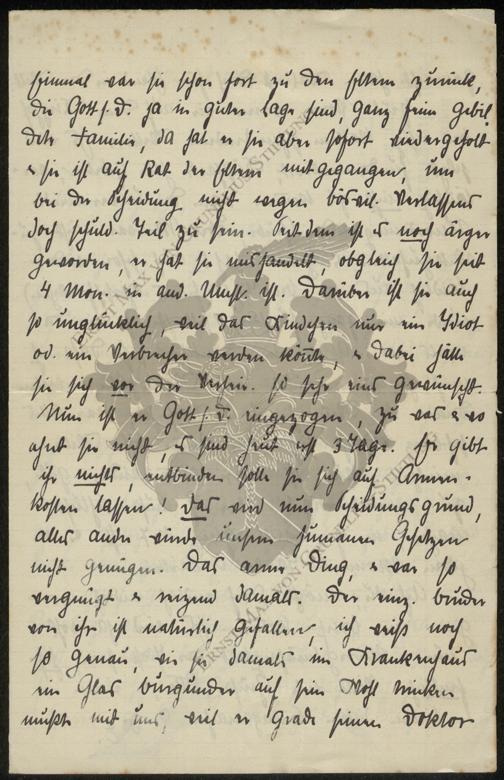 Einmal war sie schon fort zu den Eltern zurück,
die Gott s. D. ja in guter Lage sind, ganz feine gebil
dete Familie, da hat er sie aber sofort wiedergeholt
& sie ist auf Rat der Eltern mitgegangen, um
bei der Scheidung nicht wegen böswil. Verlassens
doch schuld. Teil zu sein. Seitdem ist es noch ärger
geworden, er hat sie misshandelt, obgleich sie seit
4 Mon. in and. Umst. ist. Darüber ist sie auch
so unglücklich, weil das Kindchen nur ein Idiot
od. ein Verbrecher werden könnte, & dabei hätte
sie sich vor der so sehr eins gewünscht.
Nun ist er Gott s. D. eingezogen, zu was & wo
ahnt sie nicht, es sind heut erst 3 Tage. Er gibt
ihr nichts, entbinden solle sie sich auf Armen-
kosten lassen! Das wird nun Scheidungsgrund,
alles andre würde unsern humanen Gesetzen
nicht genügen. Das arme Ding, & war so
vergnügt & reizend damals. Der einz. Bruder
von ihr ist natürlich gefallen, ich weiß noch
so genau, wie sie damals im Krankenhaus
ein Glas Burgunder auf sein Wohl trinken
mußte mit uns, weil er grade seinen Doktor